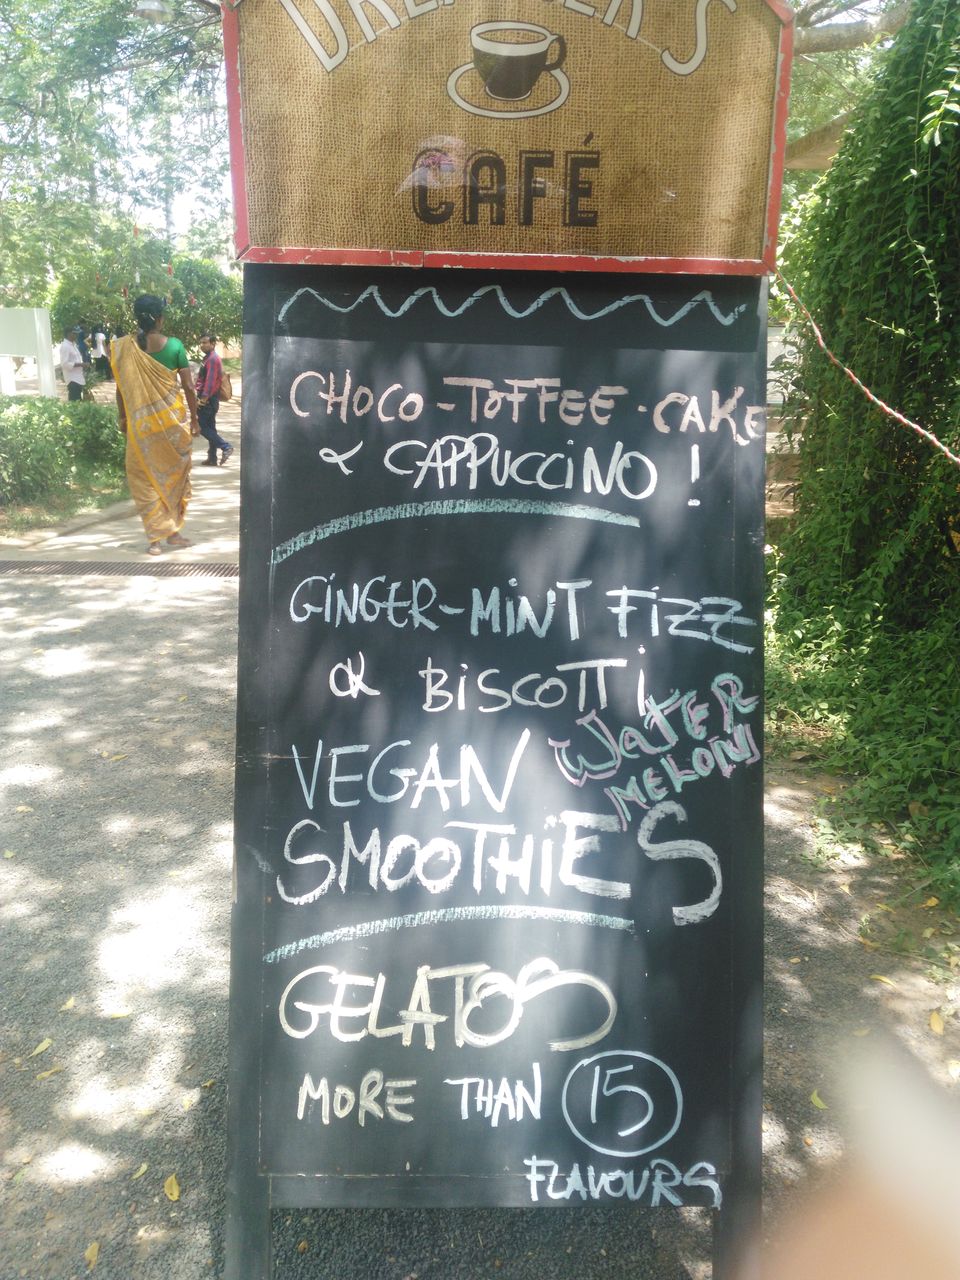 DREAMER'S
CAFÉ
CHOCO-TOFFEE-CAKE
& CAPPUCCINO !
GINGER-MINT FIZZ
& BISCOTTI
WATER
MELON
VEGAN
SMOOTHIES
GELATOS
MORE THAN 15
FLAVOURS